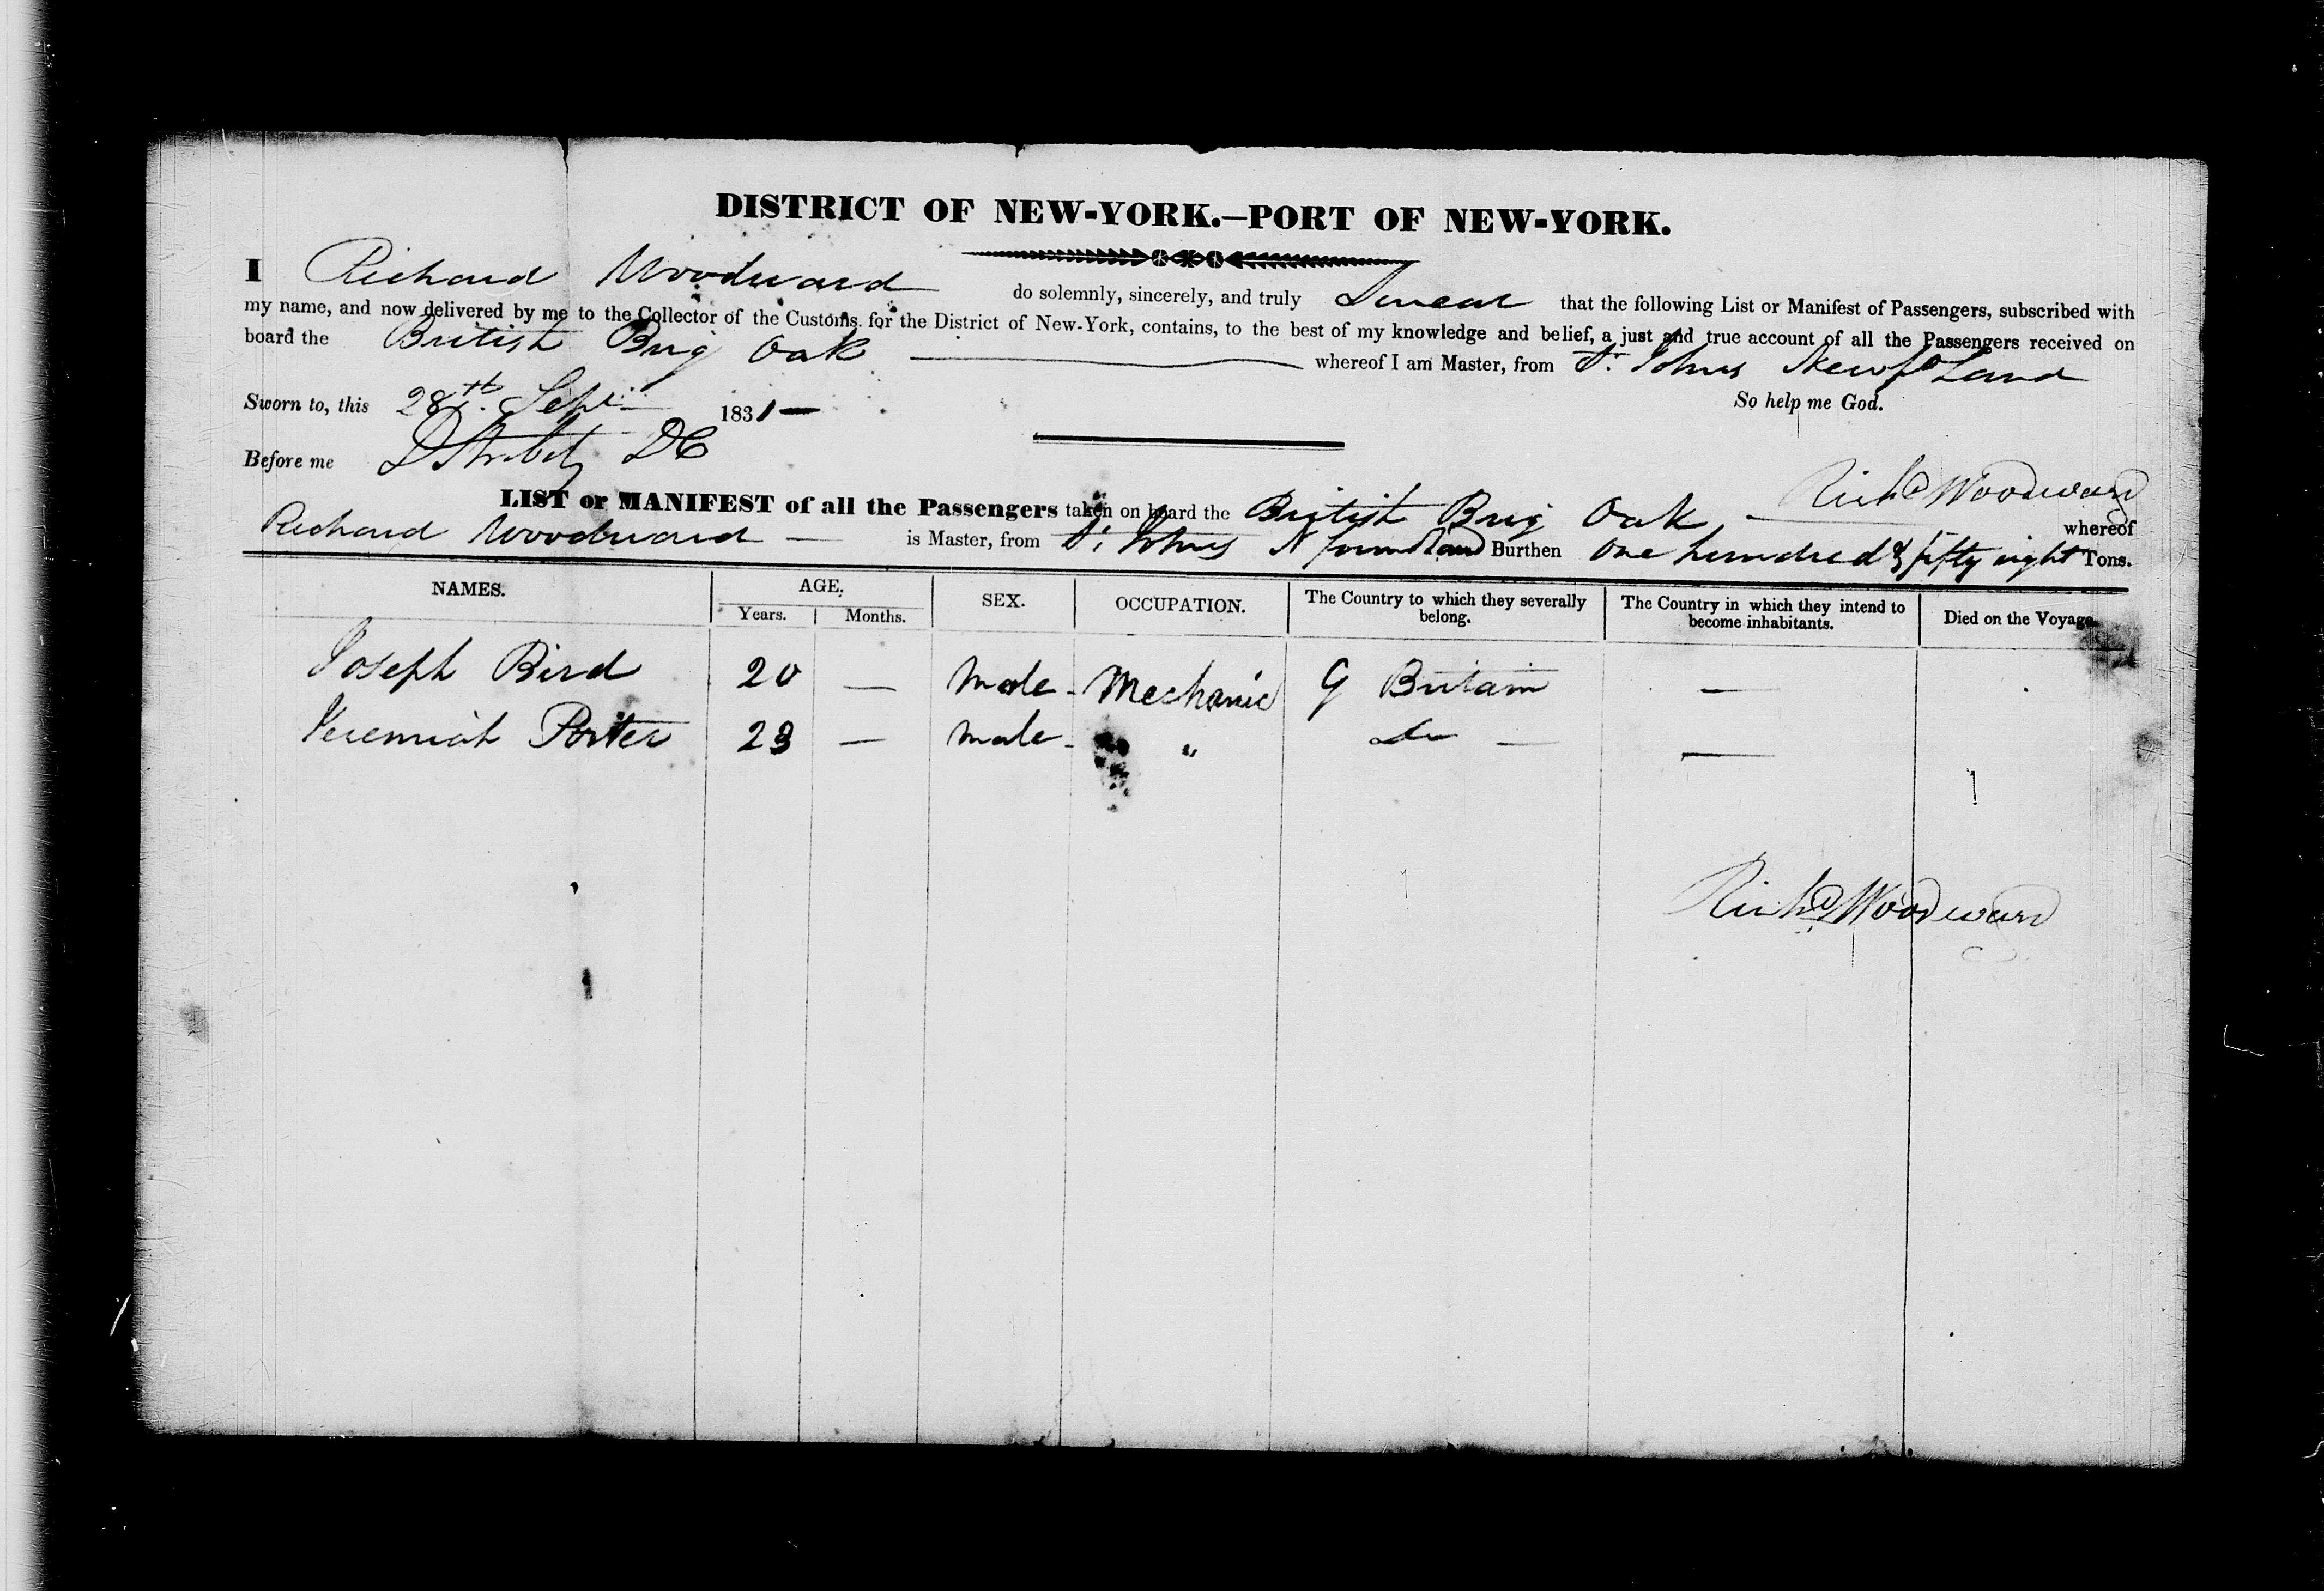 DISTRICT OF NEW-YORK.—PORT OF NEW-YORK.
I Richard Woodward do solemnly, sincerely, and truly Swear that the following List or Manifest of Passengers, subscribed with
my name, and now delivered by me to the Collector of the Customs for the District of New-York, contains, to the best of my knowledge and belief, a just and true account of all the Passengers received on
board the British Brig Oak — whereof I am Master, from St. Johns Newfd Land
Sworn to, this 28th Sept. 1831 — So help me God.
Before me DC
Richd Woodward
LIST or MANIFEST of all the Passengers taken on board the British Brig Oak, — whereof
Richard Woodward — is Master, from St. Johns N foundland Burthen One hundred & fifty eight Tons.
NAMES. AGE. SEX. OCCUPATION. The Country to which they severally belong. The Country in which they intend to become inhabitants. Died on the Voyage.
Years. Months.
Joseph Bird 20 — Male - Mechanic G Britain —
Jeremiah Porter 23 — Male - " Do — —
Richd Woodward